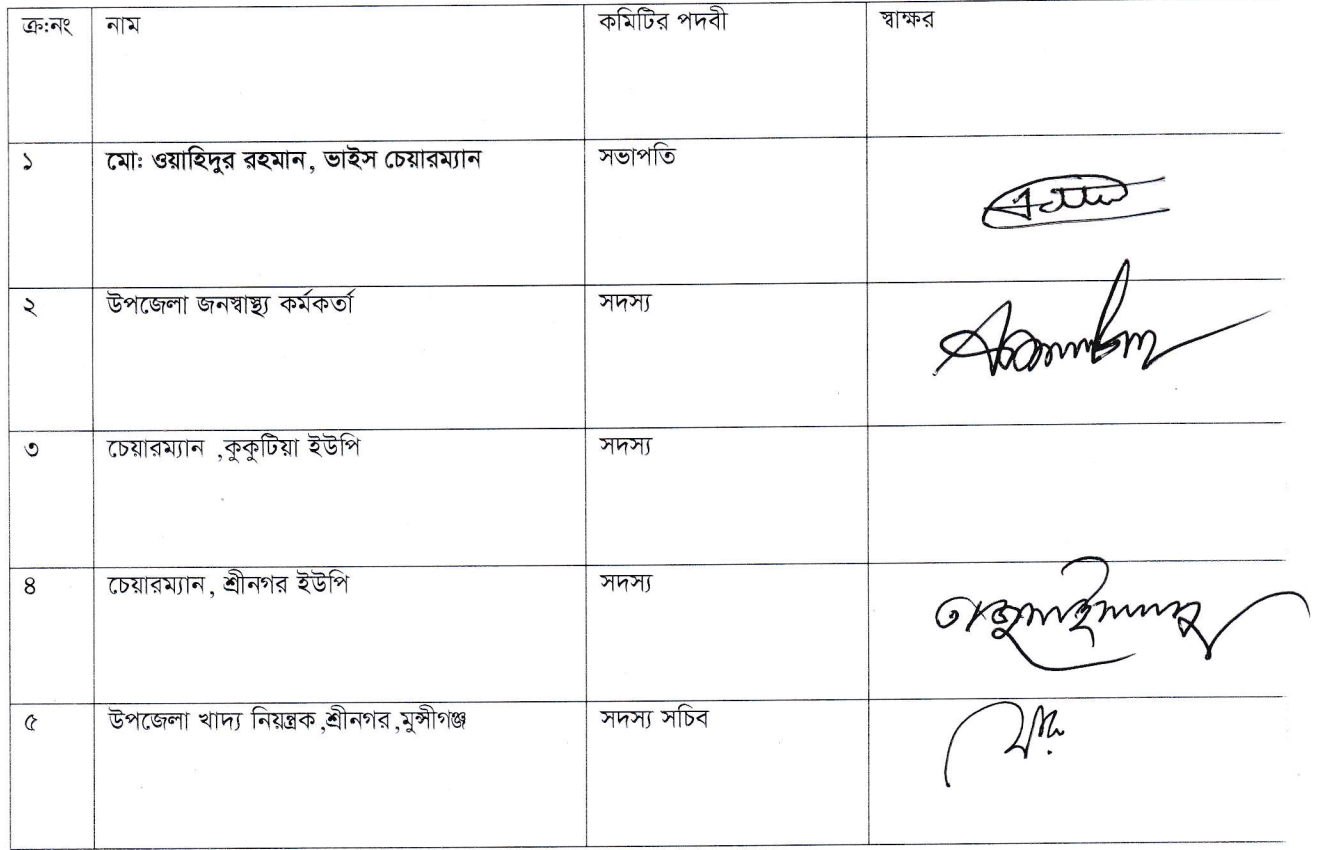 ক্র:নং নাম কমিটির পদবী স্বাক্ষর
১ মো: ওয়াহিদুর রহমান, ভাইস চেয়ারম্যান সভাপতি
২ উপজেলা জনস্বাস্থ্য কর্মকর্তা সদস্য
৩ চেয়ারম্যান ,কুকুটিয়া ইউপি সদস্য
৪ চেয়ারম্যান, শ্রীনগর ইউপি সদস্য
৫ উপজেলা খাদ্য নিয়ন্ত্রক ,শ্রীনগর ,মুন্সীগঞ্জ সদস্য সচিব